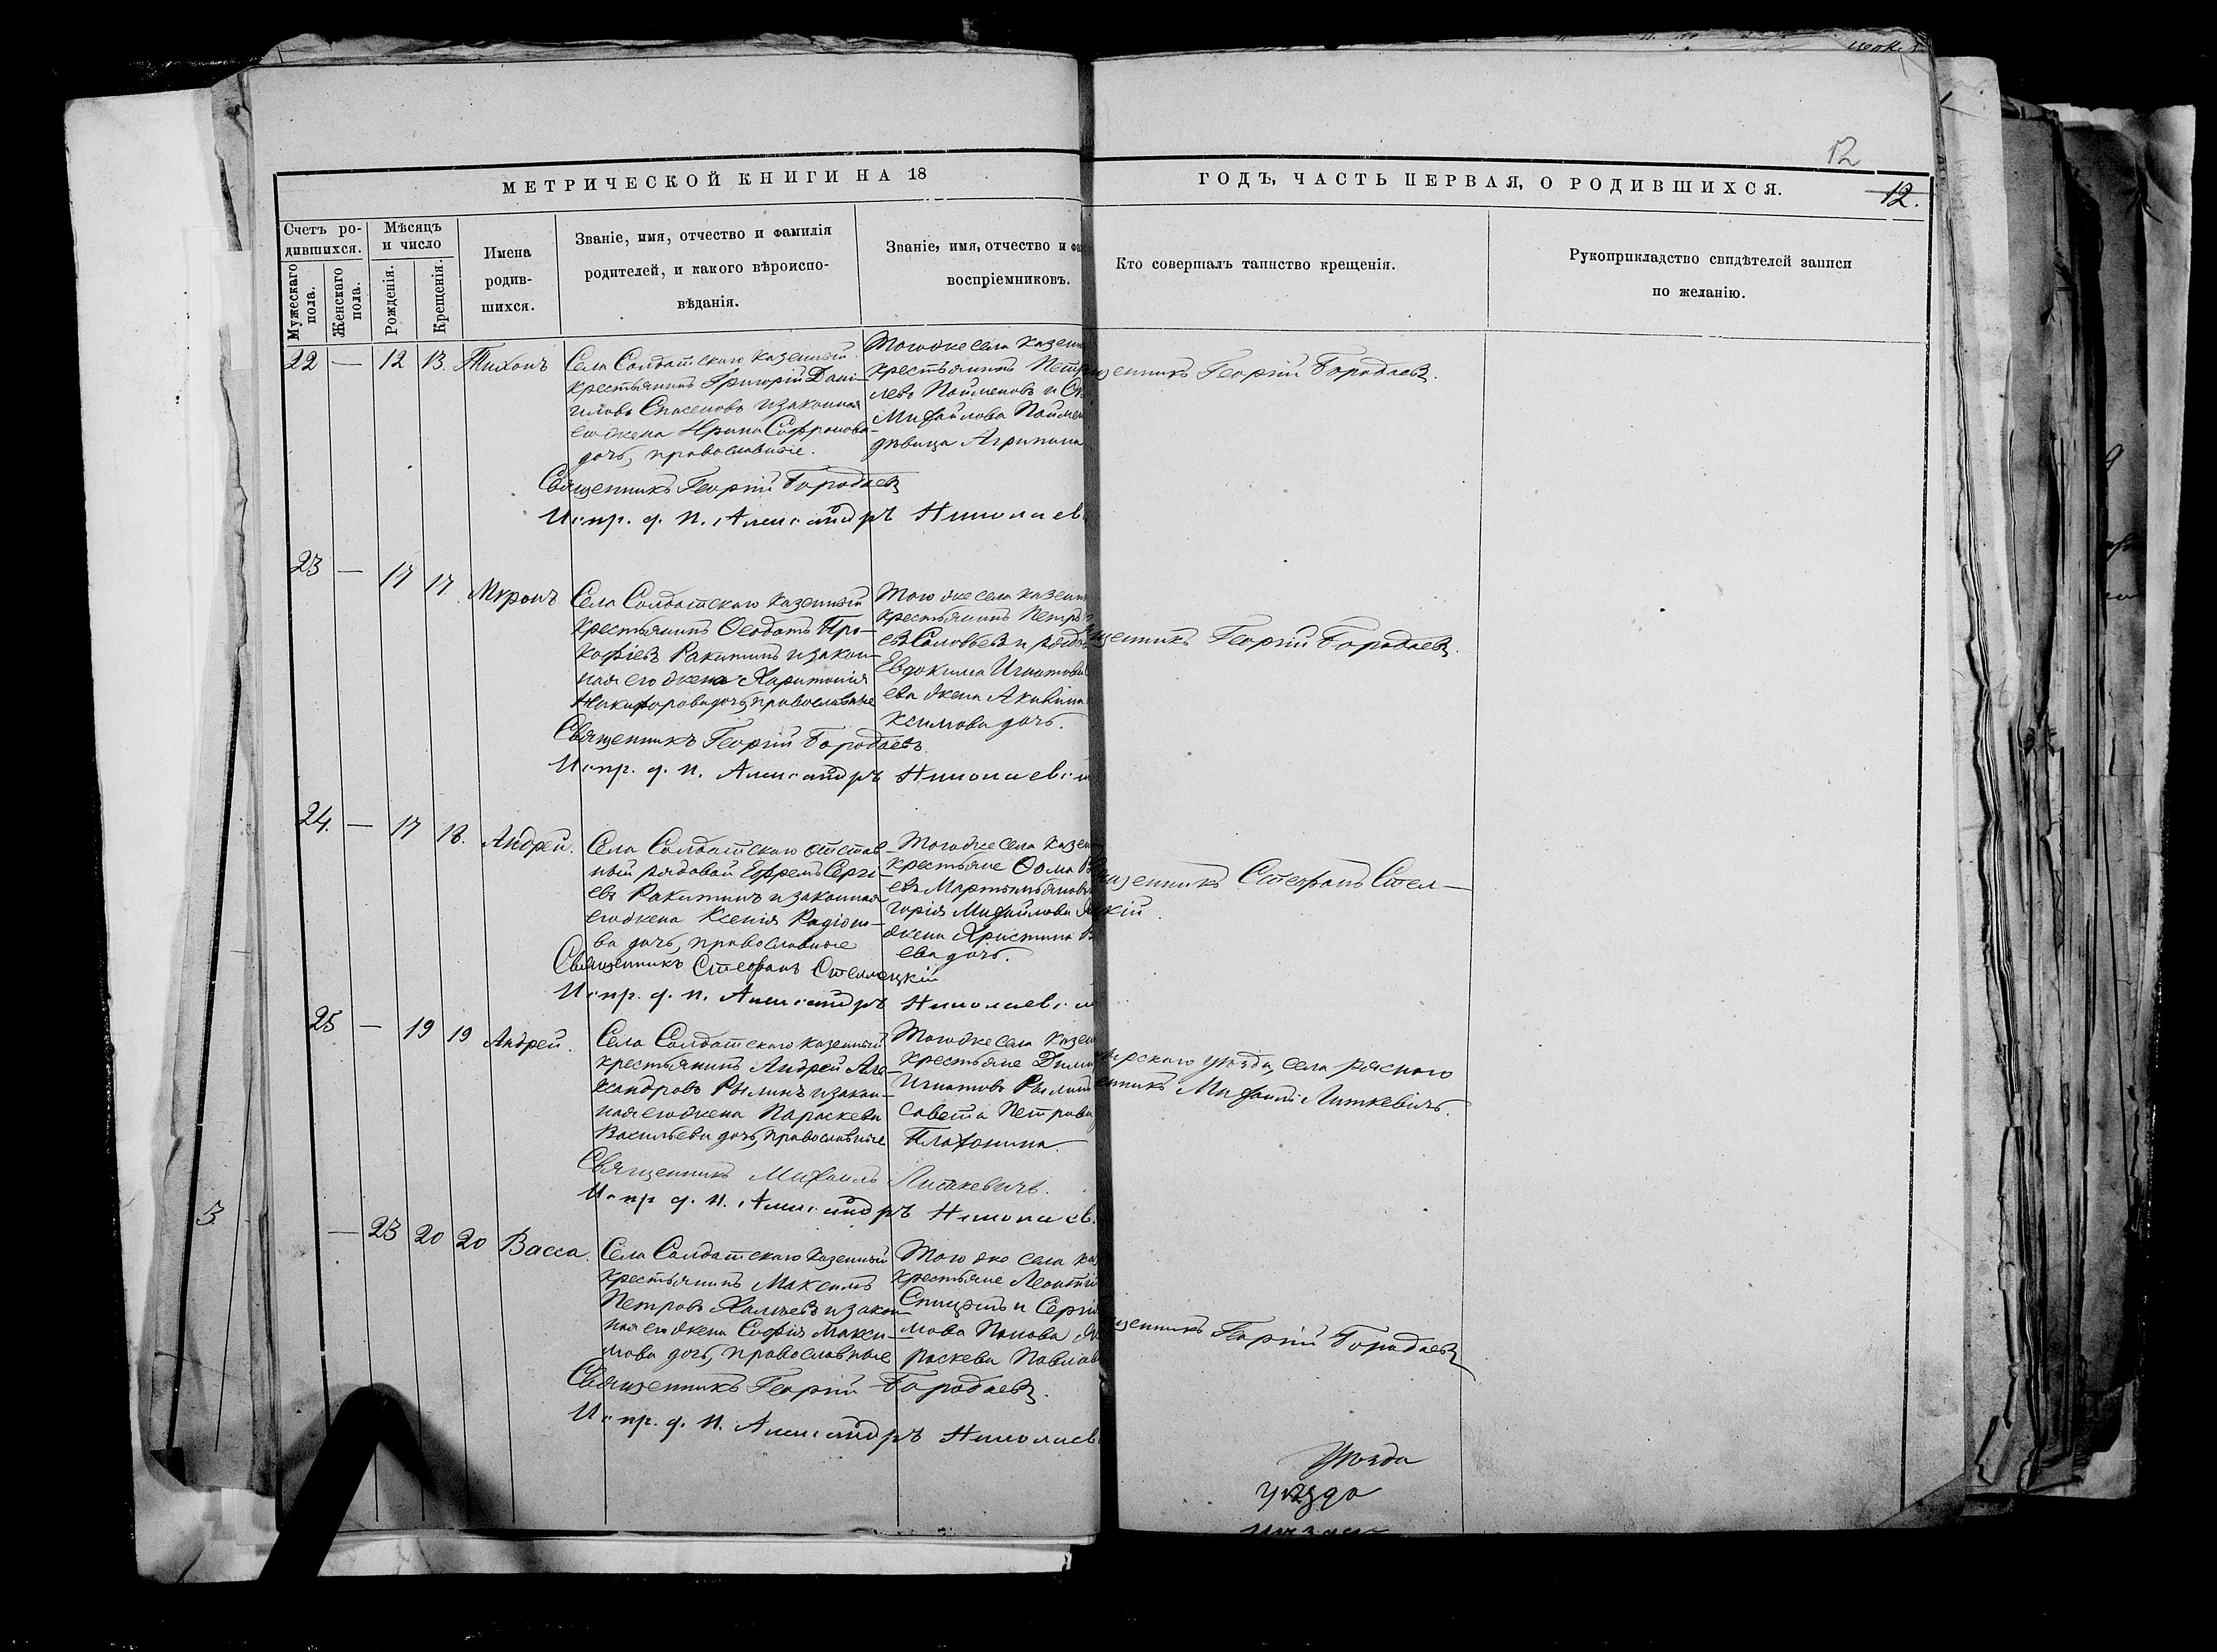 МЕТРИЧЕСКОЙ КНИГИ НА 18
ГОДЪ, ЧАСТЬ ПЕРВАЯ, О РОДИВШИХСЯ.
12
12.
Счетъ ро-
дившихся.
Мужескаго
пола.
Женскаго
пола.
Мѣсяцъ
и число
Рожденія.
Крещенія.
Имена
родив-
шихся.
Званіе, имя, отчество и фамилія
родителей, и какого вѣроиспо-
вѣданія.
Званіе, имя, отчество и фа
воспріемниковъ.
Кто совершалъ таинство крещенія.
Рукоприкладство свидѣтелей записи
по желанію.
22 — 12 13. Тихонъ
Села Солдатскаго казенный
крестьянинъ Григорій Дані-
иловъ Спасеновъ и законная
его жена Ирина Софронова
дочь, православные.
Тогоже села казен
крестьянинъ Петр
левъ Пойменовъ и
Михайлова Поймен
дѣвица Агрипина
щенникъ Георгій Бородаевъ.
Священникъ Георгій Бородаевъ
Испр. д. п. Александръ Николаев
23 — 17 17. Миронъ
Села Солдатскаго казенный
крестьянинъ Ѳеодотъ Про-
кофіевъ Ракитинъ и закон-
ная его жена Харитонія
Никифорова дочь, православные
Того же села казенн
крестьянинъ Петръ
евъ Соловьевъ и рядов
Евдокима Игнатова
ева жена Акилина
ксимова дочь.
щенникъ Георгій Бородаевъ.
Священникъ Георгій Бородаевъ.
Испр. д. п. Александръ Николаевск
24. — 17 18. Андрей.
Села Солдатскаго отстав-
ный рядовой Ефремъ Сергі-
евъ Ракитинъ и законная
его жена Ксенія Радіоно-
ва дочь, православные
Тогоже села казен
крестьяне Ѳома
евъ Мартиньяновъ
горія Михайлова
жена Христина В
ева дочь.
щенникъ Стефанъ Стел-
кій.
Священникъ Стефанъ Стеллецкій
Испр. д. п. Александръ Николаевск
25 — 19 19 Андрей.
Села Солдатскаго казенный
крестьянинъ Андрей Але-
ксандровъ Рылинъ и закон-
ная его жена Параскева
Васильева дочь, православные
Тогоже села казен
крестьяне Дими
Игнатовъ Рылинъ
савета Петрова
Платонина.
рскаго уѣзда, села Ряснаго
енникъ Михаилъ Литкевичъ.
Священникъ Михаилъ Литкевичъ.
Испр д. п. Александръ Николаев
— 23 20 20 Васса.
Села Солдатскаго казенный
крестьянинъ Максимъ
Петровъ Халчевъ и закон-
ная его жена Софія Макси-
мова дочь, православные
Того же села ка
крестьяне Леонтій
Спицынъ и Сергі
мова Попова
раскева Павлов
щенникъ Георгій Бородаевъ
Священникъ Георгій Бородаевъ.
Испр. д. п. Александръ Николаев
уѣзда
уѣзда
3.